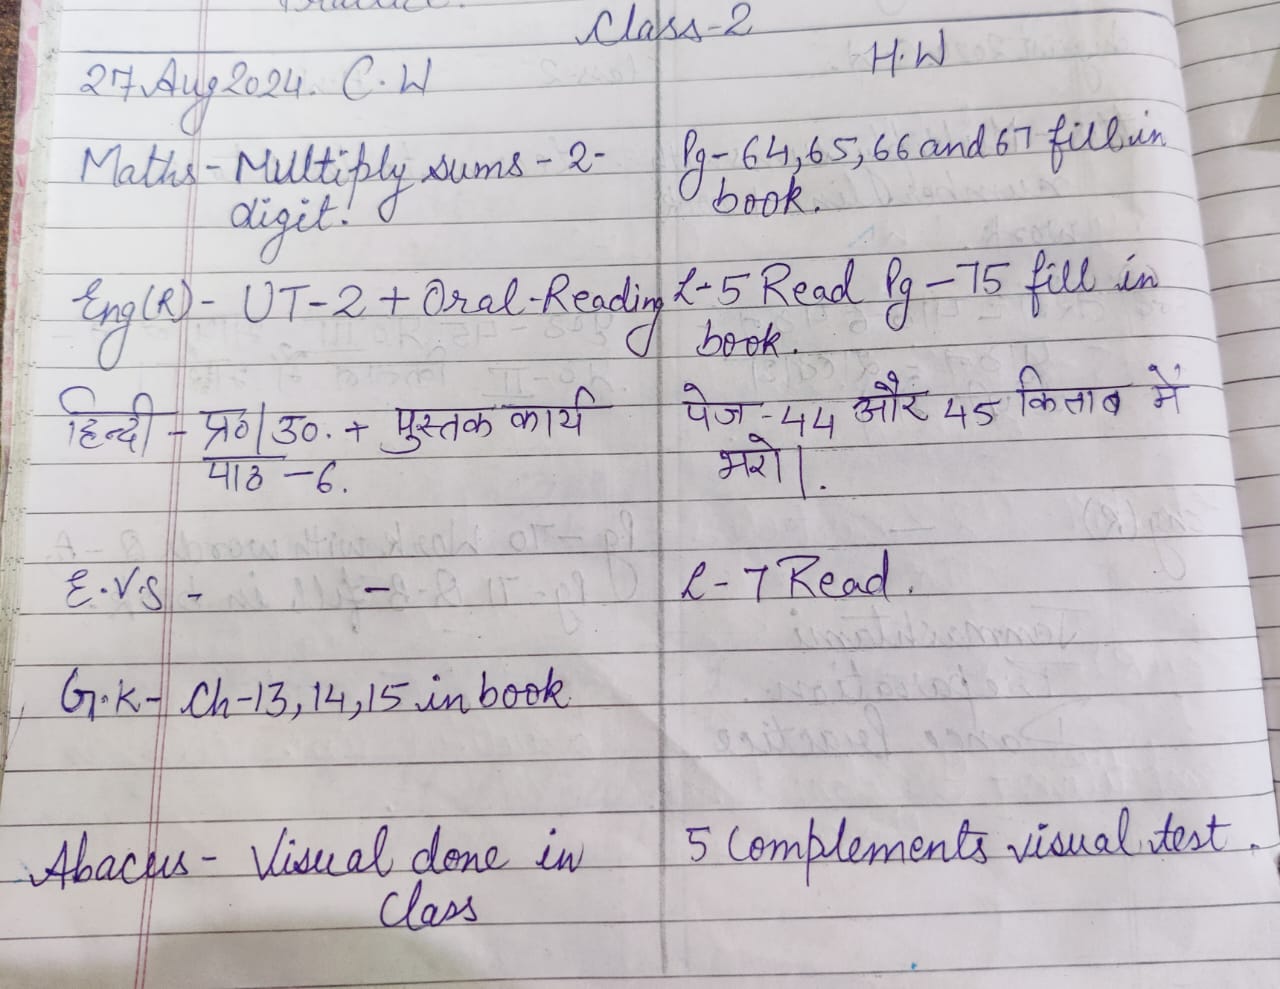 Class-2
27 Aug 2024. C.W
H.W
Maths - Multiply sums - 2-
digit.
Pg-64,65,66 and 67 fill in
book.
Eng(R) - UT-2 + Oral-Reading
L-5 Read Pg-75 fill in
book.
हिन्दी - प्र०/उ०. + पुस्तक कार्य
पाठ -6.
पेज -44 और 45 किताब में
भरो।.
E.V.S - -
L-7 Read.
G.K- Ch-13,14,15 in book
Abacus - Visual done in
Class
5 Complements visual test.